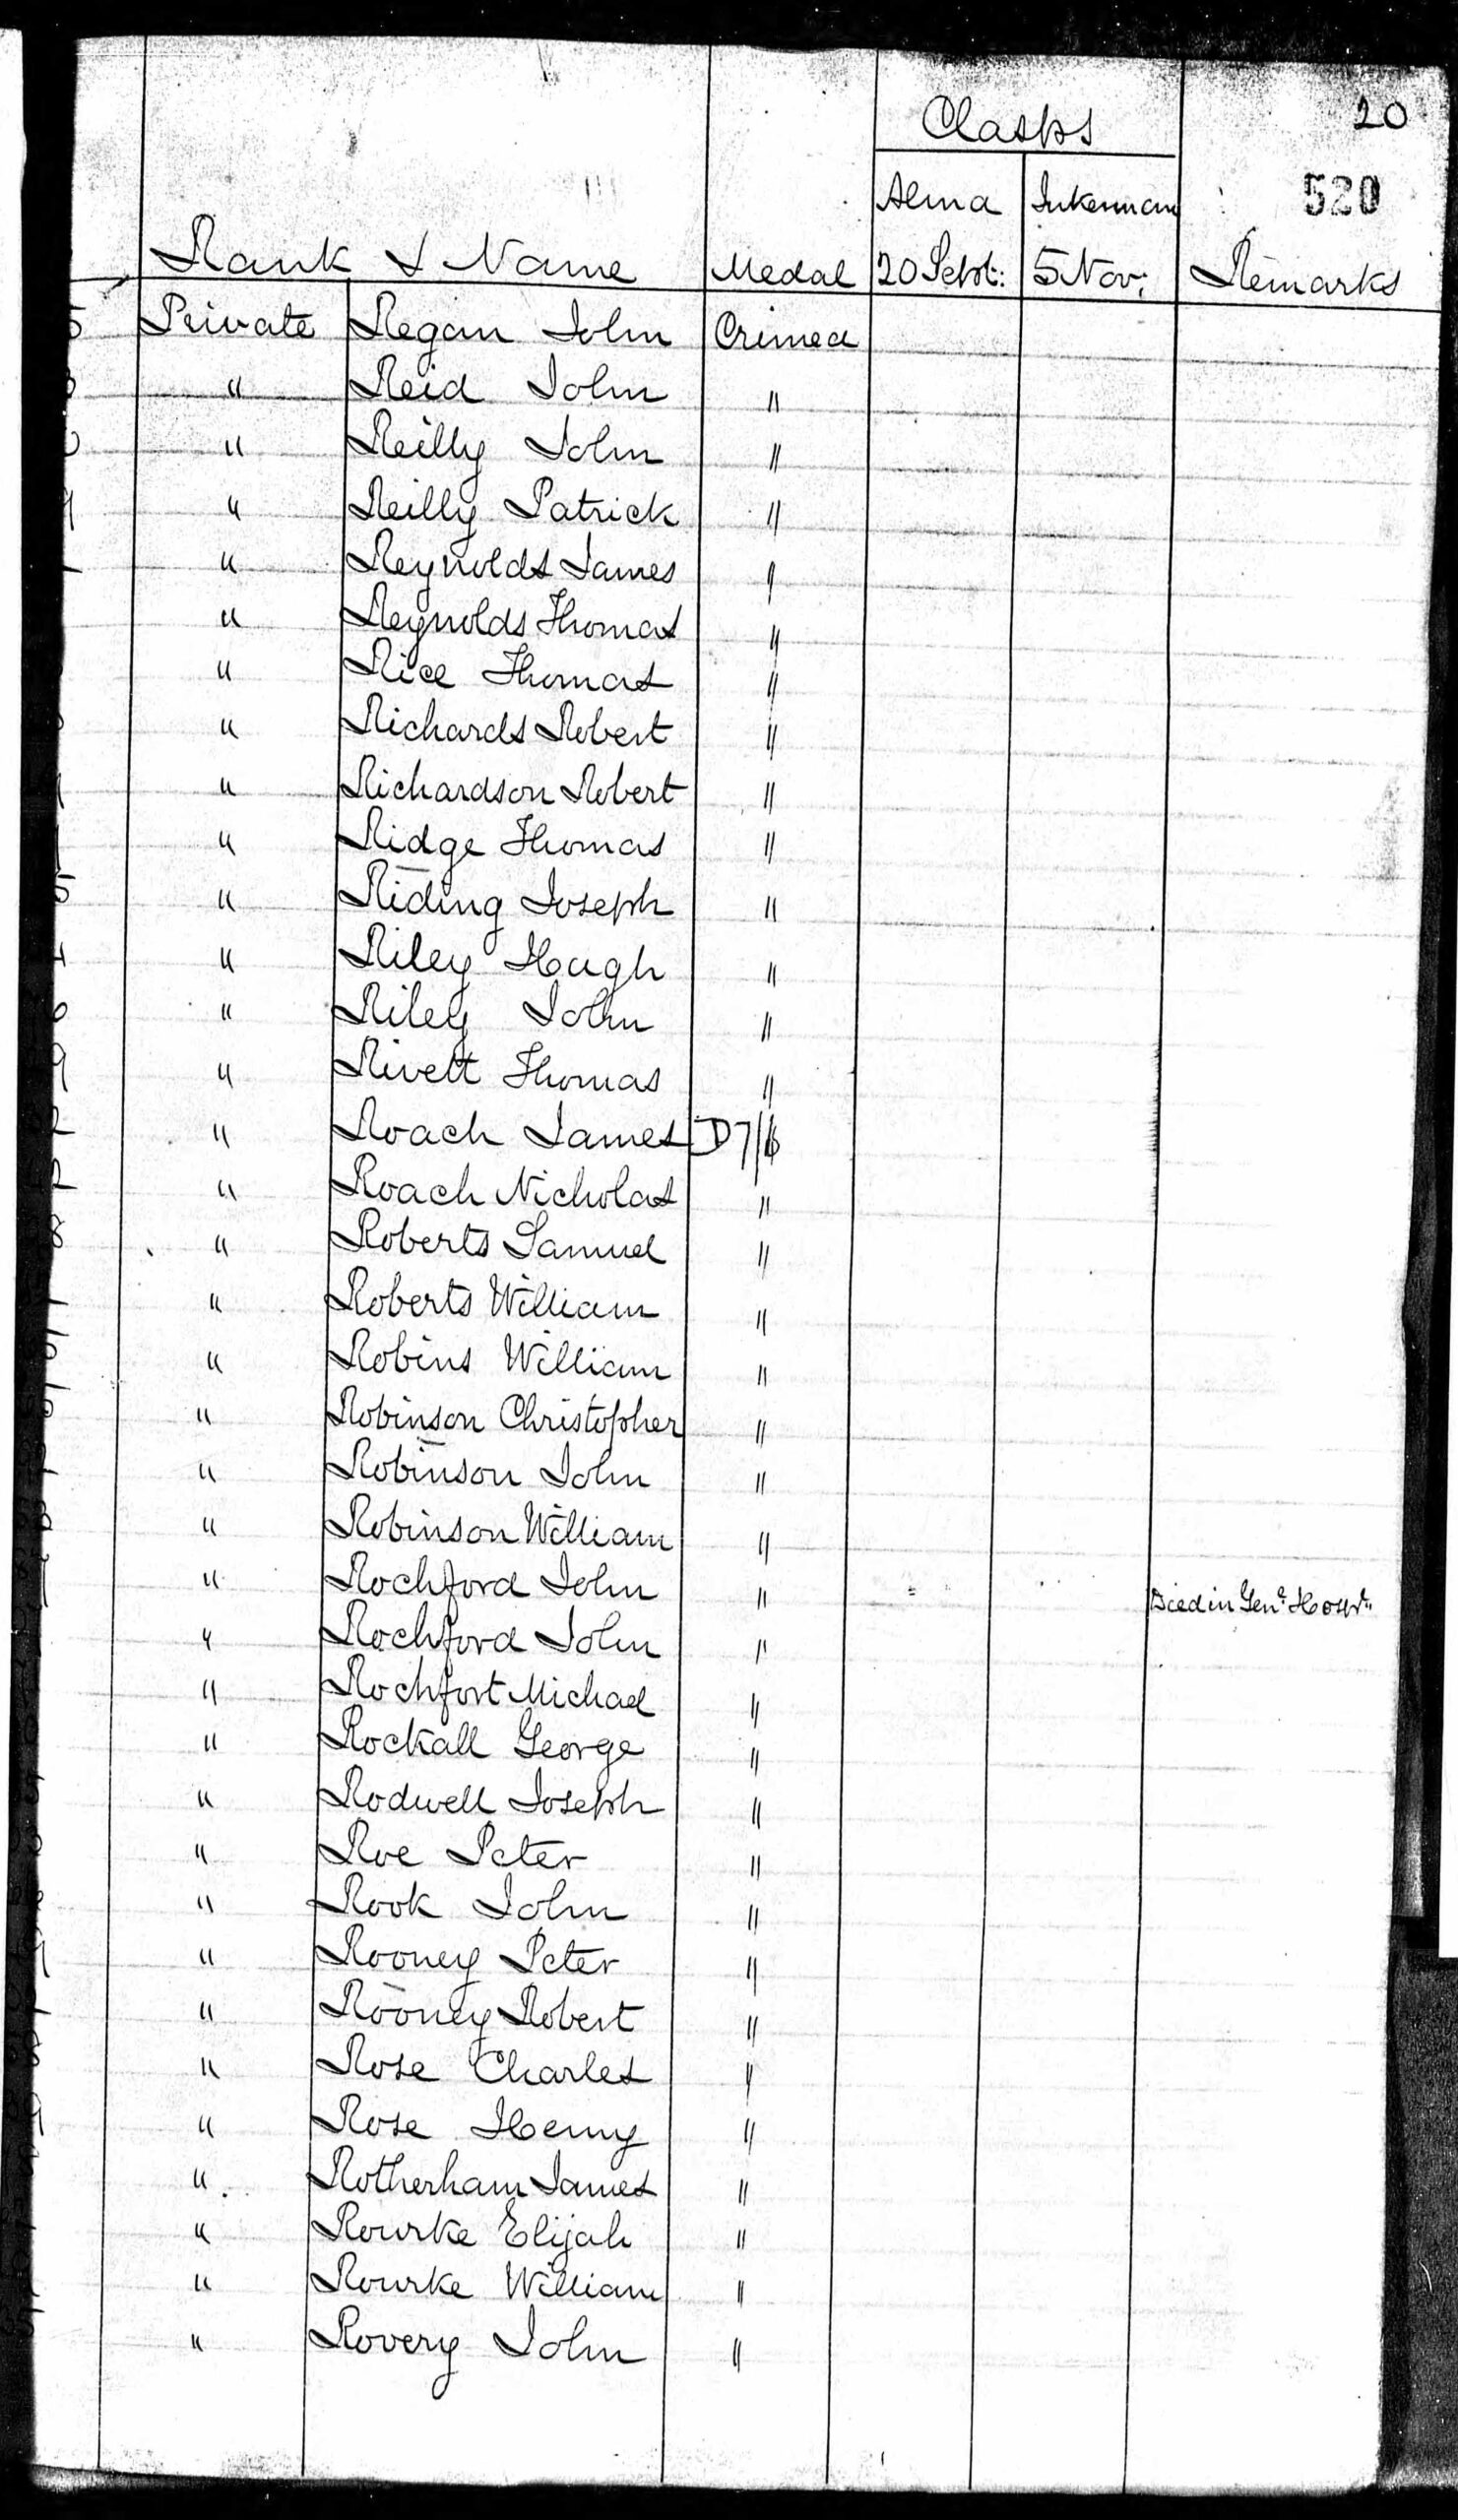 20
Clasps
520
Alma Inkerman
Rank & Name Medal 20 Sept: 5 Nov: Remarks
Private Regan John Crimea
" Reid John "
" Reilly John "
" Reilly Patrick "
" Reynolds James "
" Reynolds Thomas "
" Rice Thomas "
" Richards Robert "
" Richardson Robert "
" Ridge Thomas "
" Riding Joseph "
" Riley Hugh "
" Riley John "
" Rivett Thomas "
" Roach James D
" Roach Nicholas "
" Roberts Samuel "
" Roberts William "
" Robins William "
" Robinson Christopher "
" Robinson John "
" Robinson William "
" Rochford John " Died in Genl. Hospl.
" Rochford John "
" Rochfort Michael "
" Rockall George "
" Rodwell Joseph "
" Roe Peter "
" Rook John "
" Rooney Peter "
" Rooney Robert "
" Rose Charles "
" Rose Henry "
" Rotherham James "
" Rourke Elijah "
" Rourke William "
" Rovery John "